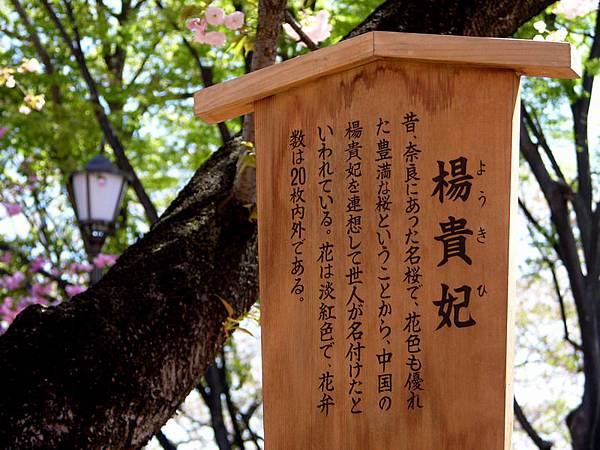 楊貴妃
ようきひ
昔、奈良にあった名桜で、花色も優れ
た豊満な桜ということから、中国の
楊貴妃を連想して世人が名付けたと
いわれている。花は淡紅色で、花弁
数は20枚内外である。